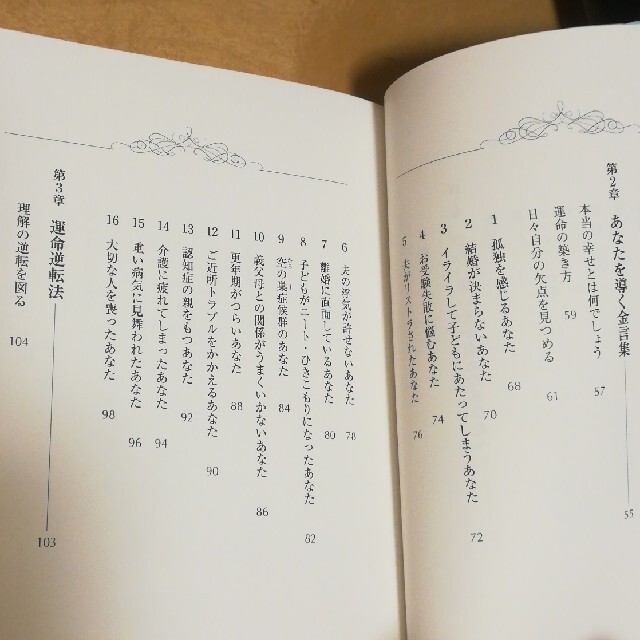 第2章 あなたを導く金言集 55
本当の幸せとは何でしょう 57
運命の築き方 59
日々自分の欠点を見つめる 61
1 孤独を感じるあなた 68
2 結婚が決まらないあなた 70
3 イライラして子どもにあたってしまうあなた 72
4 お受験失敗に悩むあなた 74
5 夫がリストラされたあなた 76
6 夫の浮気が許せないあなた 78
7 離婚に直面しているあなた 80
8 子どもがニート・ひきこもりになったあなた 82
9 空の巣症候群のあなた 84
10 義父母との関係がうまくいかないあなた 86
11 更年期がつらいあなた 88
12 ご近所トラブルをかかえるあなた 90
13 認知症の親をもつあなた 92
14 介護に疲れてしまったあなた 94
15 重い病気に見舞われたあなた 96
16 大切な人を喪ったあなた 98
第3章 運命逆転法 103
理解の逆転を図る 104